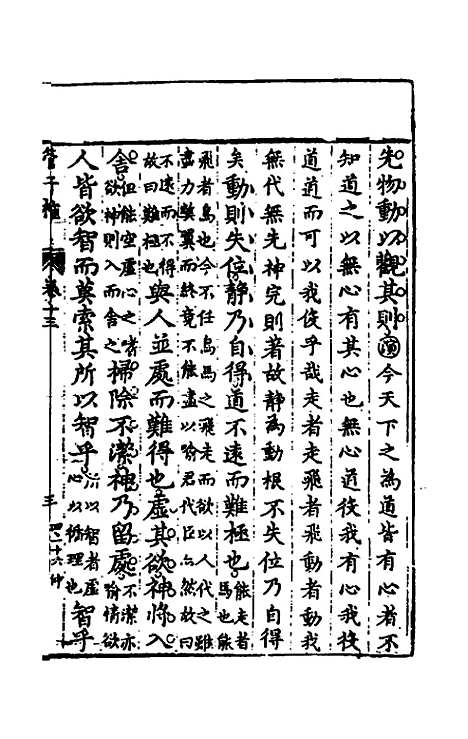 先物動以觀其則演今天下之為道皆有心者不
知道之以無心有其心也無心道役我有心我役
道道而可以我役乎哉走者走飛者飛動者動我
無代無先神完則著故靜為動根不失位乃自得
矣動則失位靜乃自得道不遠而難極也能走者馬也能
飛者鳥也今不任鳥馬之飛走而欲以人代之雖
盡力斃翼而終竟不能盡以喻君代臣亦然故曰
不遠而不得故曰難極也與人並處而難得也虛其欲神將入
舍但能空虛心之嗜欲神則入而舍之掃除不潔神乃留處不潔亦喻情欲
人皆欲智而莫索其所以智乎所以智者虛心以循理也智乎
管子榷 卷十三 三